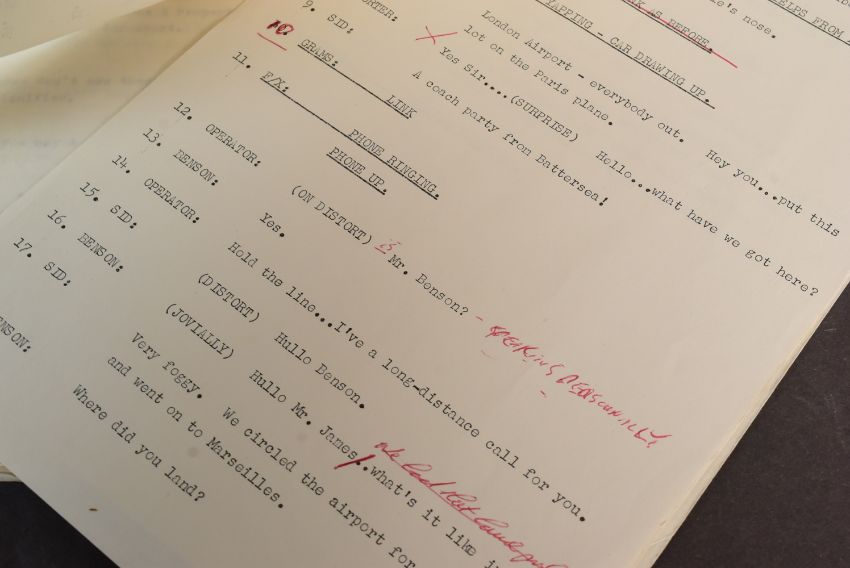 nose.
AS BEFORE.
YAPPING - CAR DRAWING UP.
London Airport - everybody out. Hey you...put this
lot on the Paris plane.
9. SID: Yes Sir....(SURPRISE) Hello...what have we got here?
A coach party from Battersea!
10. GRAMS: LINK
11. F/X: PHONE RINGING.
PHONE UP.
12. OPERATOR: (ON DISTORT) is Mr. Benson? - SPEAKING PERSONALLY
13. BENSON: Yes.
14. OPERATOR: Hold the line...I've a long-distance call for you.
15. SID: (DISTORT) Hullo Benson.
16. BENSON: (JOVIALLY) Hullo Mr. James..what's it like
17. SID: Very foggy. We circled the airport for
and went on to Marseilles.
Where did you land?